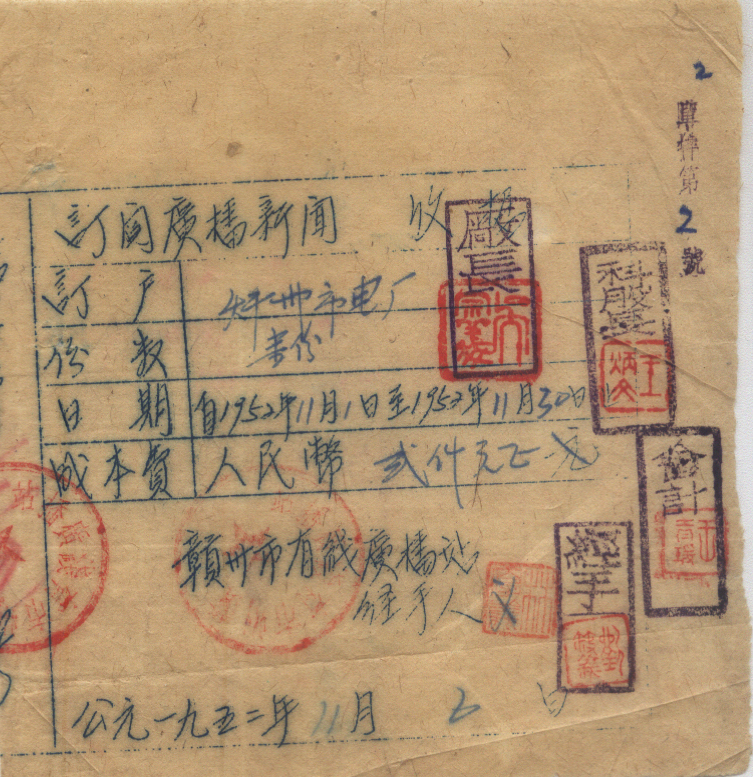 2
單種第2號
訂閱廣播新聞 收據
訂戶 贛州市电厂
份數 壹份
日期 自1952年11月1日至1952年11月30日
成本費 人民幣 弍仟元正
贛州市有綫廣播站
経手人
公元一九五二年11月2日
廠長
科股長
王炳文
會計
經手